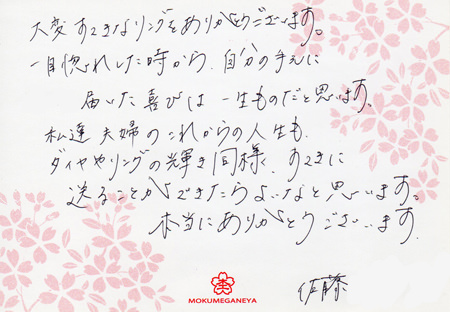 大変すてきなリングをありがとうございます。
一目惚れした時から、自分の手元に
届いた喜びは一生ものだと思います。
私達夫婦のこれからの人生も、
ダイヤやリングの輝き同様、すてきに
送ることができたらよいなと思います。
本当にありがとうございます。
佐藤
MOKUMEGANEYA